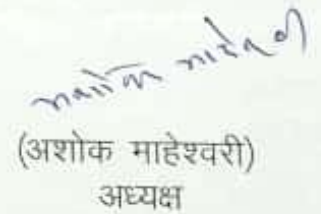 अशोक माहेश्वरी
(अशोक माहेश्वरी)
अध्यक्ष